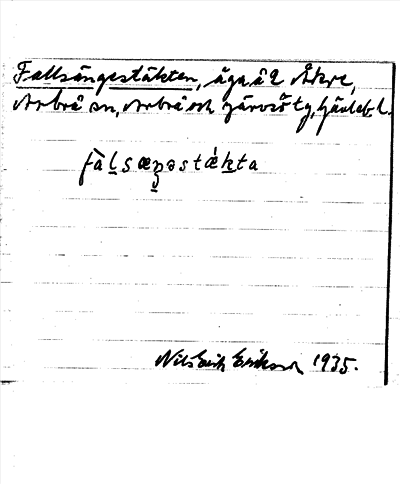 Fallsängestäkten, äga å 2 Åkre,
Arbrå sn, Arbrå och Järvsö tg, Gävleb. l.
fàl̠sæŋəstǽk̠ta
Nils Erik Eriksson 1935.